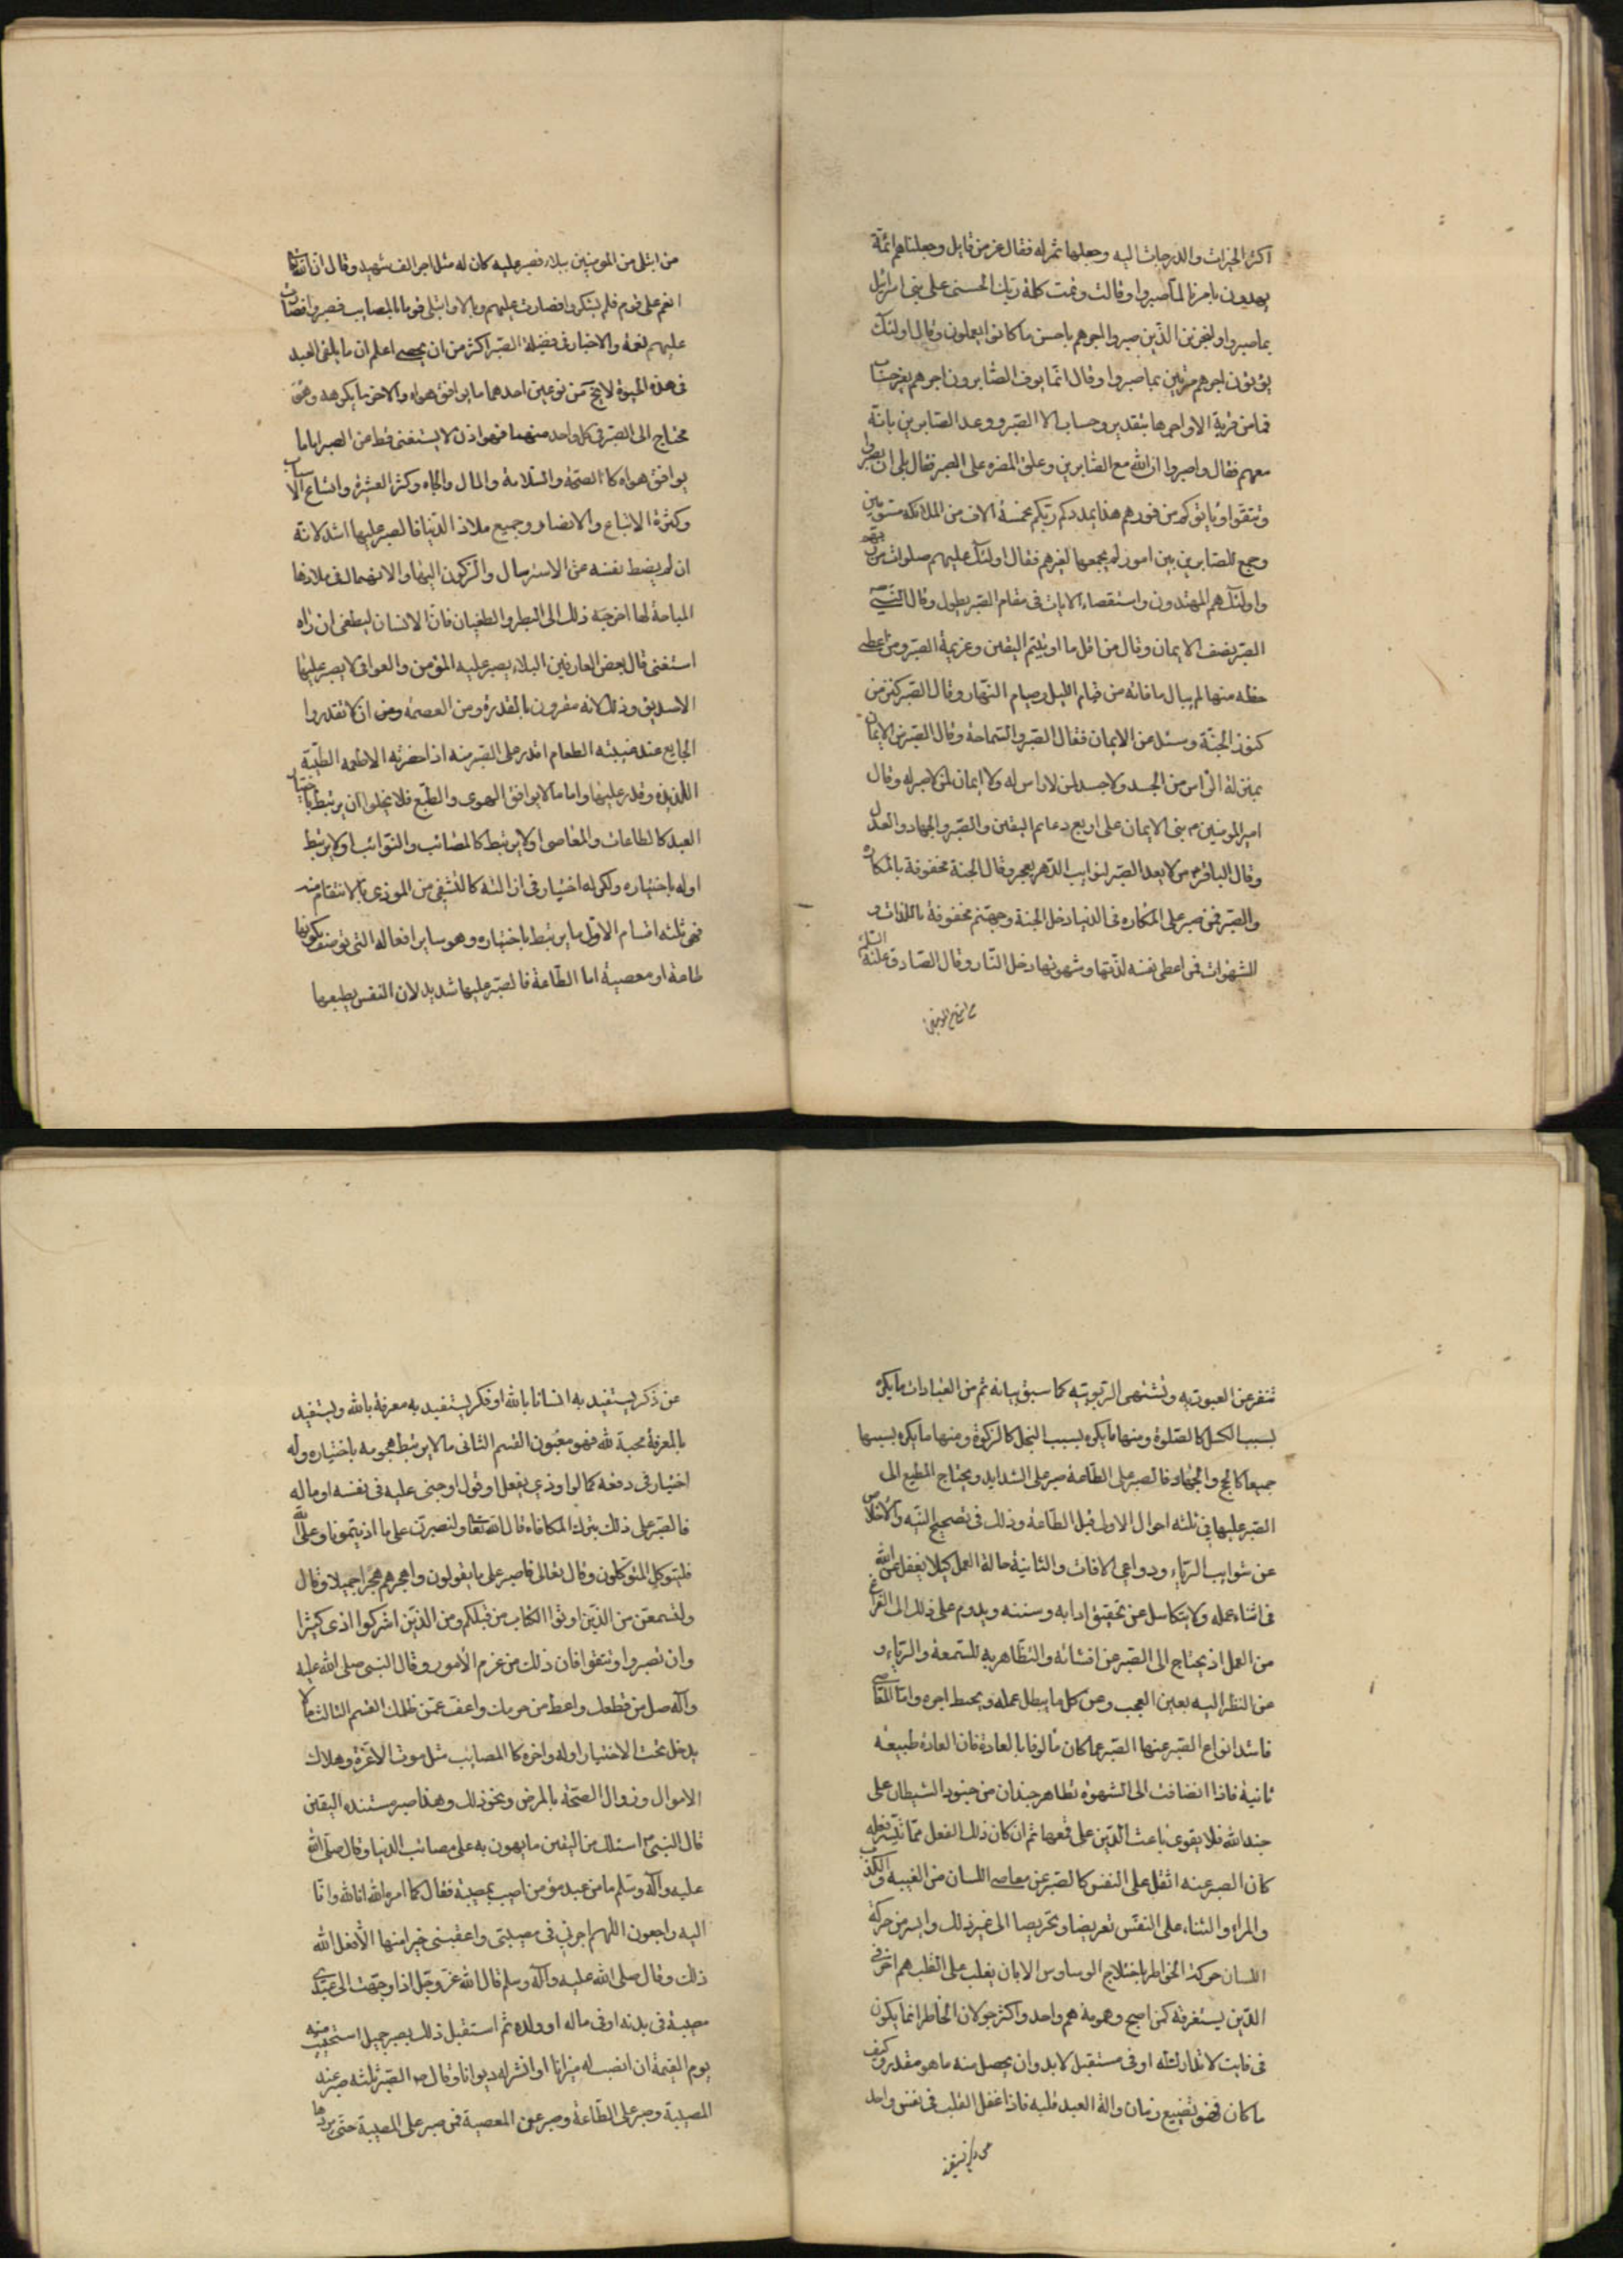 اكثر الخيرات والدرجات اليه وجعلها ثمرة له فقال عز من قايل وجعلناهم ائمة
يهدون بامرنا لما صبروا وقالت وتمت كلمة ربك الحسنى على بنى اسرائيل
بما صبروا ولنجزين الذين صبروا اجرهم باحسن ما كانوا يعملون وقال اولئك
يؤتون اجرهم مرتين بما صبروا وقال انما يوف الصابرون اجرهم بغير حساب
فما من قربة الا واجرها بتقدير وحساب الا الصبر ووعد الصابرين بانه
معهم فقال واصبروا ان الله مع الصابرين وعلق النصرة على الصبر فقال بلى ان تصبروا
وتتقوا وياتوكم من فورهم هذا يمددكم ربكم بخمسة الاف من الملائكة مسومين
وجمع للصابرين بين امور لم يجمعها لغيرهم فقال اولئك عليهم صلوات من ربهم
واولئك هم المهتدون واستقصاء الايات فى مقام الصبر يطول وقال النبى ص
الصبر نصف الايمان وقال من اقل ما اوتيتم اليقين وعزيمة الصبر ومن اعطى
حظه منها لم يبال ما فاته من قيام الليل وصيام النهار وقال الصبر كنز من
كنوز الجنة وسئل عن الايمان فقال الصبر والسماحة وقال الصبر من الايمان
بمنزلة الراس من الجسد ولا جسد لمن لا راس له ولا ايمان لمن لا صبر له وقال
امير المومنين ع بنى الايمان على اربع دعائم اليقين والصبر والجهاد والعدل
وقال الباقر ع من لا يعد الصبر لنوايب الدهر يعجز وقال الجنة محفوفة بالمكاره
والصبر فمن صبر على المكاره فى الدنيا دخل الجنة وجهنم محفوفة باللذات و
الشهوات فمن اعطى نفسه لذتها وشهوتها دخل النار وقال الصادق عليه السلم
من ابتلى من المومنين
من ابتلى من المومنين ببلاء فصبر عليه كان له مثل اجر الف شهيد وقال ان الله تعالى
انعم على قوم فلم يشكروا فصارت عليهم وبالا وابتلى قوما بالمصايب فصبروا فصارت
عليهم نعمة والاخبار فى فضيلة الصبر اكثر من ان يحصى اعلم ان ما يلقى العبد
فى هذه الحيوة لا يخ من نوعين احدهما ما يوافق هواه والاخر ما يكرهه وهو
محتاج الى الصبر فى كل واحد منهما فهو اذن لا يستغنى قط عن الصبر اما ما
يوافق هواه كالصحة والسلامة والمال والجاه وكثرة العشيرة واتساع الاسباب
وكثرة الاتباع والانصار وجميع ملاذ الدنيا فالصبر عليها اشد لانه
ان لم يضبط نفسه عن الاسترسال والركون اليها والانهماك فى ملاذها
المباحة لها اخرجه ذلك الى البطر والطغيان فان الانسان ليطغى ان راه
استغنى قال بعض العارفين البلاء يصبر عليه المؤمن والعوافى لا يصبر عليها
الا صديق وذلك لانه مقرون بالقدرة ومن العصمة ومن ان لا تقدروا
الجايع عند غيبته الطعام اقدر على الصبر منه اذا حضرته الاطعمه الطيبة
اللذيذة وقدر عليها واما ما لا يوافق الهوى والطبع فلا يخلوا ان يرتبط باختيار
العبد كالطاعات والمعاصى او لا يرتبط كالمصائب والنوائب او لا يرتبط
اوله باختياره ولكن له اختيار فى ازالته كالتشفى من الموذى بالانتقام منه
فهى ثلثه اقسام الاول ما يرتبط باختياره وهو ساير افعاله التى توصف بكونها
طاعة او معصية اما الطاعة فالصبر عليها شديد لان النفس بطبعها
تنفر عن العبودية وتشتهى الربوبيه كما سبق بيانه ثم من العبادات ما يكره
بسبب الكسل كالصلوة ومنها ما يكره بسبب البخل كالزكوة ومنها ما يكره بسببهما
جميعا كالحج والجهاد فالصبر على الطاعة صبر على الشدايد ويحتاج المطيع الى
الصبر عليها فى ثلثه احوال الاول قبل الطاعة وذلك فى تصحيح النيه والاخلاص
عن شوايب الرياء ودواعى الافات والثانية حالة العمل كيلا يغفل عن الله
فى اثناء عمله ولا يتكاسل عن تحقيق ادابه وسننه ويدوم على ذلك الى الفراغ
من العمل اذ يحتاج الى الصبر عن افشائه والتظاهر به للسمعة والرياء و
من النظر اليه بعين العجب وعن كل ما يبطل عمله ويحبط اجره واما المعاصى
فاشد انواع الصبر عنها الصبر عما كان مألوفا بالعادة فان العادة طبيعه
ثانية فاذا انضافت الى الشهوة تظاهر جندان من جنود الشيطان على
جند الله فلا يقوى باعث الدين على قمعها ثم ان كان ذلك الفعل مما تيسر فعله
كان الصبر عنه اثقل على النفس كالصبر عن معاصى اللسان من الغيبه والكذب
والمراء والثناء على النفس تعريضا وتصريحا الى غير ذلك وايسر من حركة
اللسان حركة الخواطر باختلاج الوساوس الا بان يغلب على القلب هم اخر فى
الدين يستغرقه كمن اصبح وهمومه هم واحد واكثر جولان الخاطر انما يكون
فى فايت لا تدارك له او فى مستقبل لا بد وان يحصل منه ما هو مقدر وكيف
ما كان فهو تضييع زمان والة العبد قلبه فاذا غفل القلب فى نفس واحد
عن ذكر يستفيد
عن ذكر يستفيد به انسا بالله او فكر يستفيد به معرفة بالله ويستفيد
بالمعرفة محبة لله فهو مغبون القسم الثانى ما لا يرتبط هجومه باختياره وله
اختيار فى دفعه كما لو اوذى بفعل او قول او جنى عليه فى نفسه او ماله
فالصبر على ذلك بترك المكافاة قال الله تعالى ولنصبرن على ما اذيتمونا وعلى الله
فليتوكل المتوكلون وقال تعالى فاصبر على ما يقولون واهجرهم هجرا جميلا وقال
ولتسمعن من الذين اوتوا الكتاب من قبلكم ومن الذين اشركوا اذى كثيرا
وان تصبروا وتتقوا فان ذلك من عزم الامور وقال النبى صلى الله عليه
وآله صل من قطعك واعط من حرمك واعف عمن ظلمك القسم الثالث ما لا
يدخل تحت الاختيار اوله واخره كالمصايب مثل موت الاعزة وهلاك
الاموال وزوال الصحة بالمرض ونحو ذلك وهذا صبر مستنده اليقين
قال النبى ص اسئلك من اليقين ما يهون به على مصائب الدنيا وقال صلى الله
عليه وآله وسلم ما من عبد مؤمن اصيب بمصيبة فقال كما امره الله انا لله وانا
اليه راجعون اللهم اجرنى فى مصيبتى واعقبنى خيرا منها الا فعل الله
ذلك وقال صلى الله عليه وآله وسلم قال الله عز وجل اذا وجهت الى عبدى
مصيبة فى بدنه او فى ماله او ولده ثم استقبل ذلك بصبر جميل استحييت منه
يوم القيمة ان انصب له ميزانا او انشر له ديوانا وقال ص الصبر ثلثه صبر عند
المصيبة وصبر على الطاعة وصبر عن المعصية فمن صبر على المصيبة حتى يردها